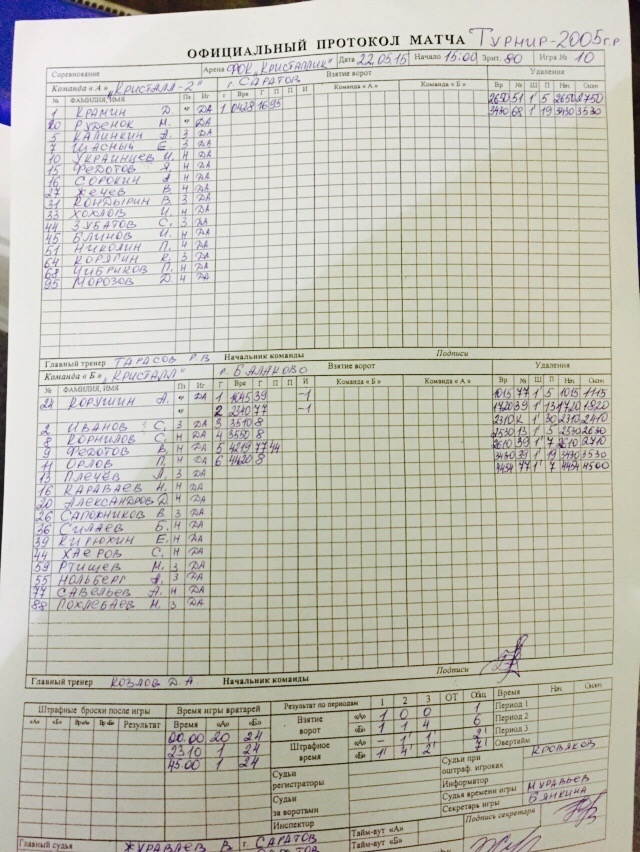 ОФИЦИАЛЬНЫЙ ПРОТОКОЛ МАТЧА Турнир-2005г.р
Соревнование Арена ФОК "Кристаллик" г. Саратов Дата 22.05.15 Начало 15:00 Зрит. 80 Игра № 10
Команда «А» "Кристалл-2" Взятие ворот Удаления
№ ФАМИЛИЯ, ИМЯ Пз Иг Г Вре Г П П И Команда «А» Команда «Б» Вр № Ш П Нач Окон
1 Крамин Д. " ДА 1 0428 16 95 2650 51 1' 5 2650 2750
20 Руденок М. " ДА 3430 68 1' 19 3430 3530
5 Калинкин А. З ДА
7 Щасный Е. З ДА
10 Украинцев И. Н ДА
15 Федотов Я. Н ДА
16 Сорокин А. Н ДА
27 Жечев В. Н ДА
31 Кондырин В. З ДА
33 Хохлов И. Н ДА
44 Зубатов С. З ДА
45 Блинов И. Н ДА
51 Николин П. Н ДА
64 Корягин К. З ДА
68 Чибриков П. Н ДА
95 Морозов Д. Н ДА
Главный тренер Тарасов Р.В Начальник команды Подписи
Команда «Б» "Кристалл" г. Балаково Взятие ворот Удаления
№ ФАМИЛИЯ, ИМЯ Пз Иг Г Вре Г П П И Команда «Б» Команда «А» Вр № Ш П Нач Окон
24 Корушин А. " ДА 1 1045 39 –1 1015 77 1' 5 1015 1115
" 2 2310 77 –1 1720 39 1' 13 1720 1820
2 Иванов С. З ДА 3 3510 8 2310 К 1' 30 2310 2410
8 Корнилов С. Н ДА 4 3550 8 2530 13 1' 5 2530 2630
9 Федотов В. Н ДА 5 4219 77 44 2610 39 1' 7 2610 2710
11 Орлов П. Н ДА 6 4420 8 3430 39 1' 19 3430 3530
13 Плечёв Л. З ДА 4454 77 1' 7 4454 4500
16 Караваев Н. Н ДА
20 Александров Д. Н ДА
26 Сапожников В. З ДА
36 Силаев Б. Н ДА
39 Кирюхин Е. Н ДА
44 Хаеров С. Н ДА
59 Ртищев М. З ДА
55 Нольберг А. З ДА
77 Савельев А. Н ДА
88 Похлебаев М. З ДА
Главный тренер Козлов Д.А. Начальник команды Подписи
Штрафные броски после игры Время игры вратарей Результат по периодам 1 2 3 ОТ Общ Время Нач Окон
«А» «Б» Вр«А» Вр«Б» Результат Время «А» «Б» Взятие ворот «А» 1 0 0 1 Период 1
00.00 20 24 «Б» 1 1 4 6 Период 2
23 10 1 24 Штрафное время «А» - 1' 1' 2' Период 3
45.00 1 24 «Б» 1' 4' 2' 7' Овертайм
Судьи регистраторы Судьи при оштраф. игроках Кровяков
Информатор
Судьи за воротами Судья времени игры Муравьев
Секретарь игры Бянкина
Инспектор Подпись секретаря
Главный судья Журавлев В г. Саратов Тайм-аут «А»
Тайм-аут «Б»